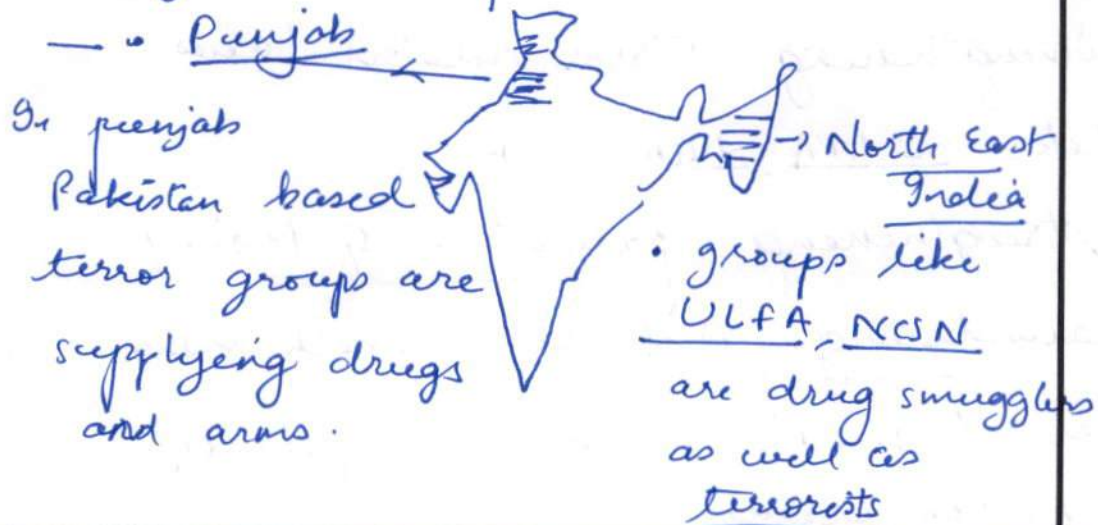 Punjab
In punjab
Pakistan based
terror groups are
supplyeing drugs
and arms.
→ North East
India
• groups like
ULFA, NCSN
are drug smugglers
as well as
terrorists